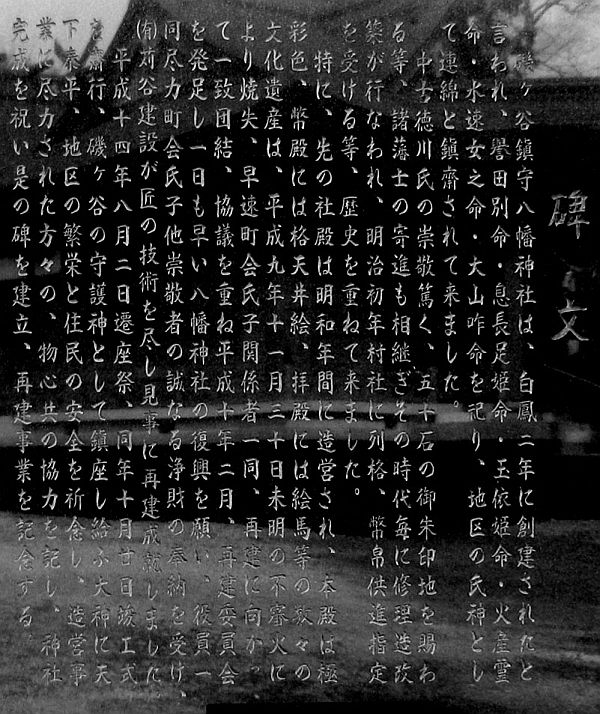 碑文
磯ヶ谷鎮守八幡神社は、白鳳二年に創建されたと
言われ、誉田別命・息長足姫命・玉依姫命・火産霊
命・水速女之命・大山咋命を祀り、地区の氏神とし
て連綿と鎮齋されて来ました。
中古徳川氏の崇敬篤く、五十石の御朱印地を賜わ
る等、諸藩士の寄進も相継ぎその時代毎に修理造改
築が行なわれ、明治初年村社に列格、幣帛供進指定
を受ける等、歴史を重ねて来ました。
特に、先の社殿は明和年間に造営され、本殿は極
彩色、幣殿には格天井絵、拝殿には絵馬等の数々の
文化遺産は、平成九年十一月三十日未明の不審火に
より焼失、早速町会氏子関係者一同、再建に向かっ
て一致団結、協議を重ね平成十年二月、再建委員会
を発足し一日も早い八幡神社の復興を願い、役員一
同尽力町会氏子他崇敬者の誠なる浄財の奉納を受け、
㈲苅谷建設が匠の技術を尽し見事に再建成就しました。
平成十四年八月二日遷座祭、同年十月廿日竣工式
斎行、磯ヶ谷の守護神として鎮座し給ふ大神に天
下泰平、地区の繁栄と住民の安全を祈念し、造営事
業に尽力された方々の、物心共の協力を記し、神社
完成を祝い是の碑を建立、再建事業を記念する。